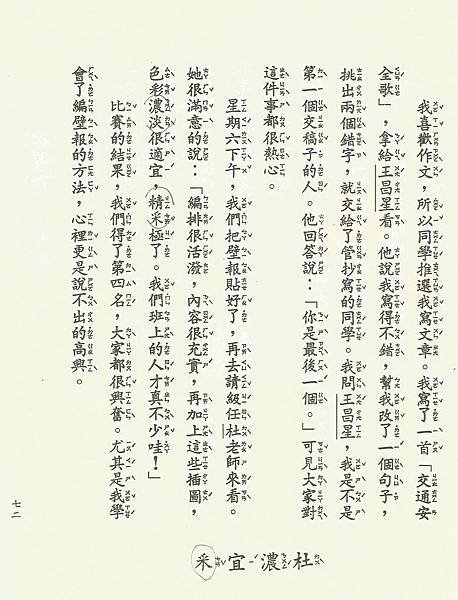 我喜歡作文，所以同學推選我寫文章。我寫了一首「交通安
全歌」，拿給王昌星看。他說我寫得不錯，幫我改了一個句子，
挑出兩個錯字，就交給了管抄寫的同學。我問王昌星，我是不是
第一個交稿子的人。他回答說：「你是最後一個。」可見大家對
這件事都很熱心。
星期六下午，我們把壁報貼好了，再去請級任杜老師來看。
她很滿意的說：「編排很活潑，內容很充實，再加上這些插圖，
色彩濃淡很適宜，精采極了。我們班上的人才真不少哇！」
比賽的結果，我們得了第四名，大家都很興奮。尤其是我學
會了編壁報的方法，心裡更是說不出的高興。
杜濃宜采
七二